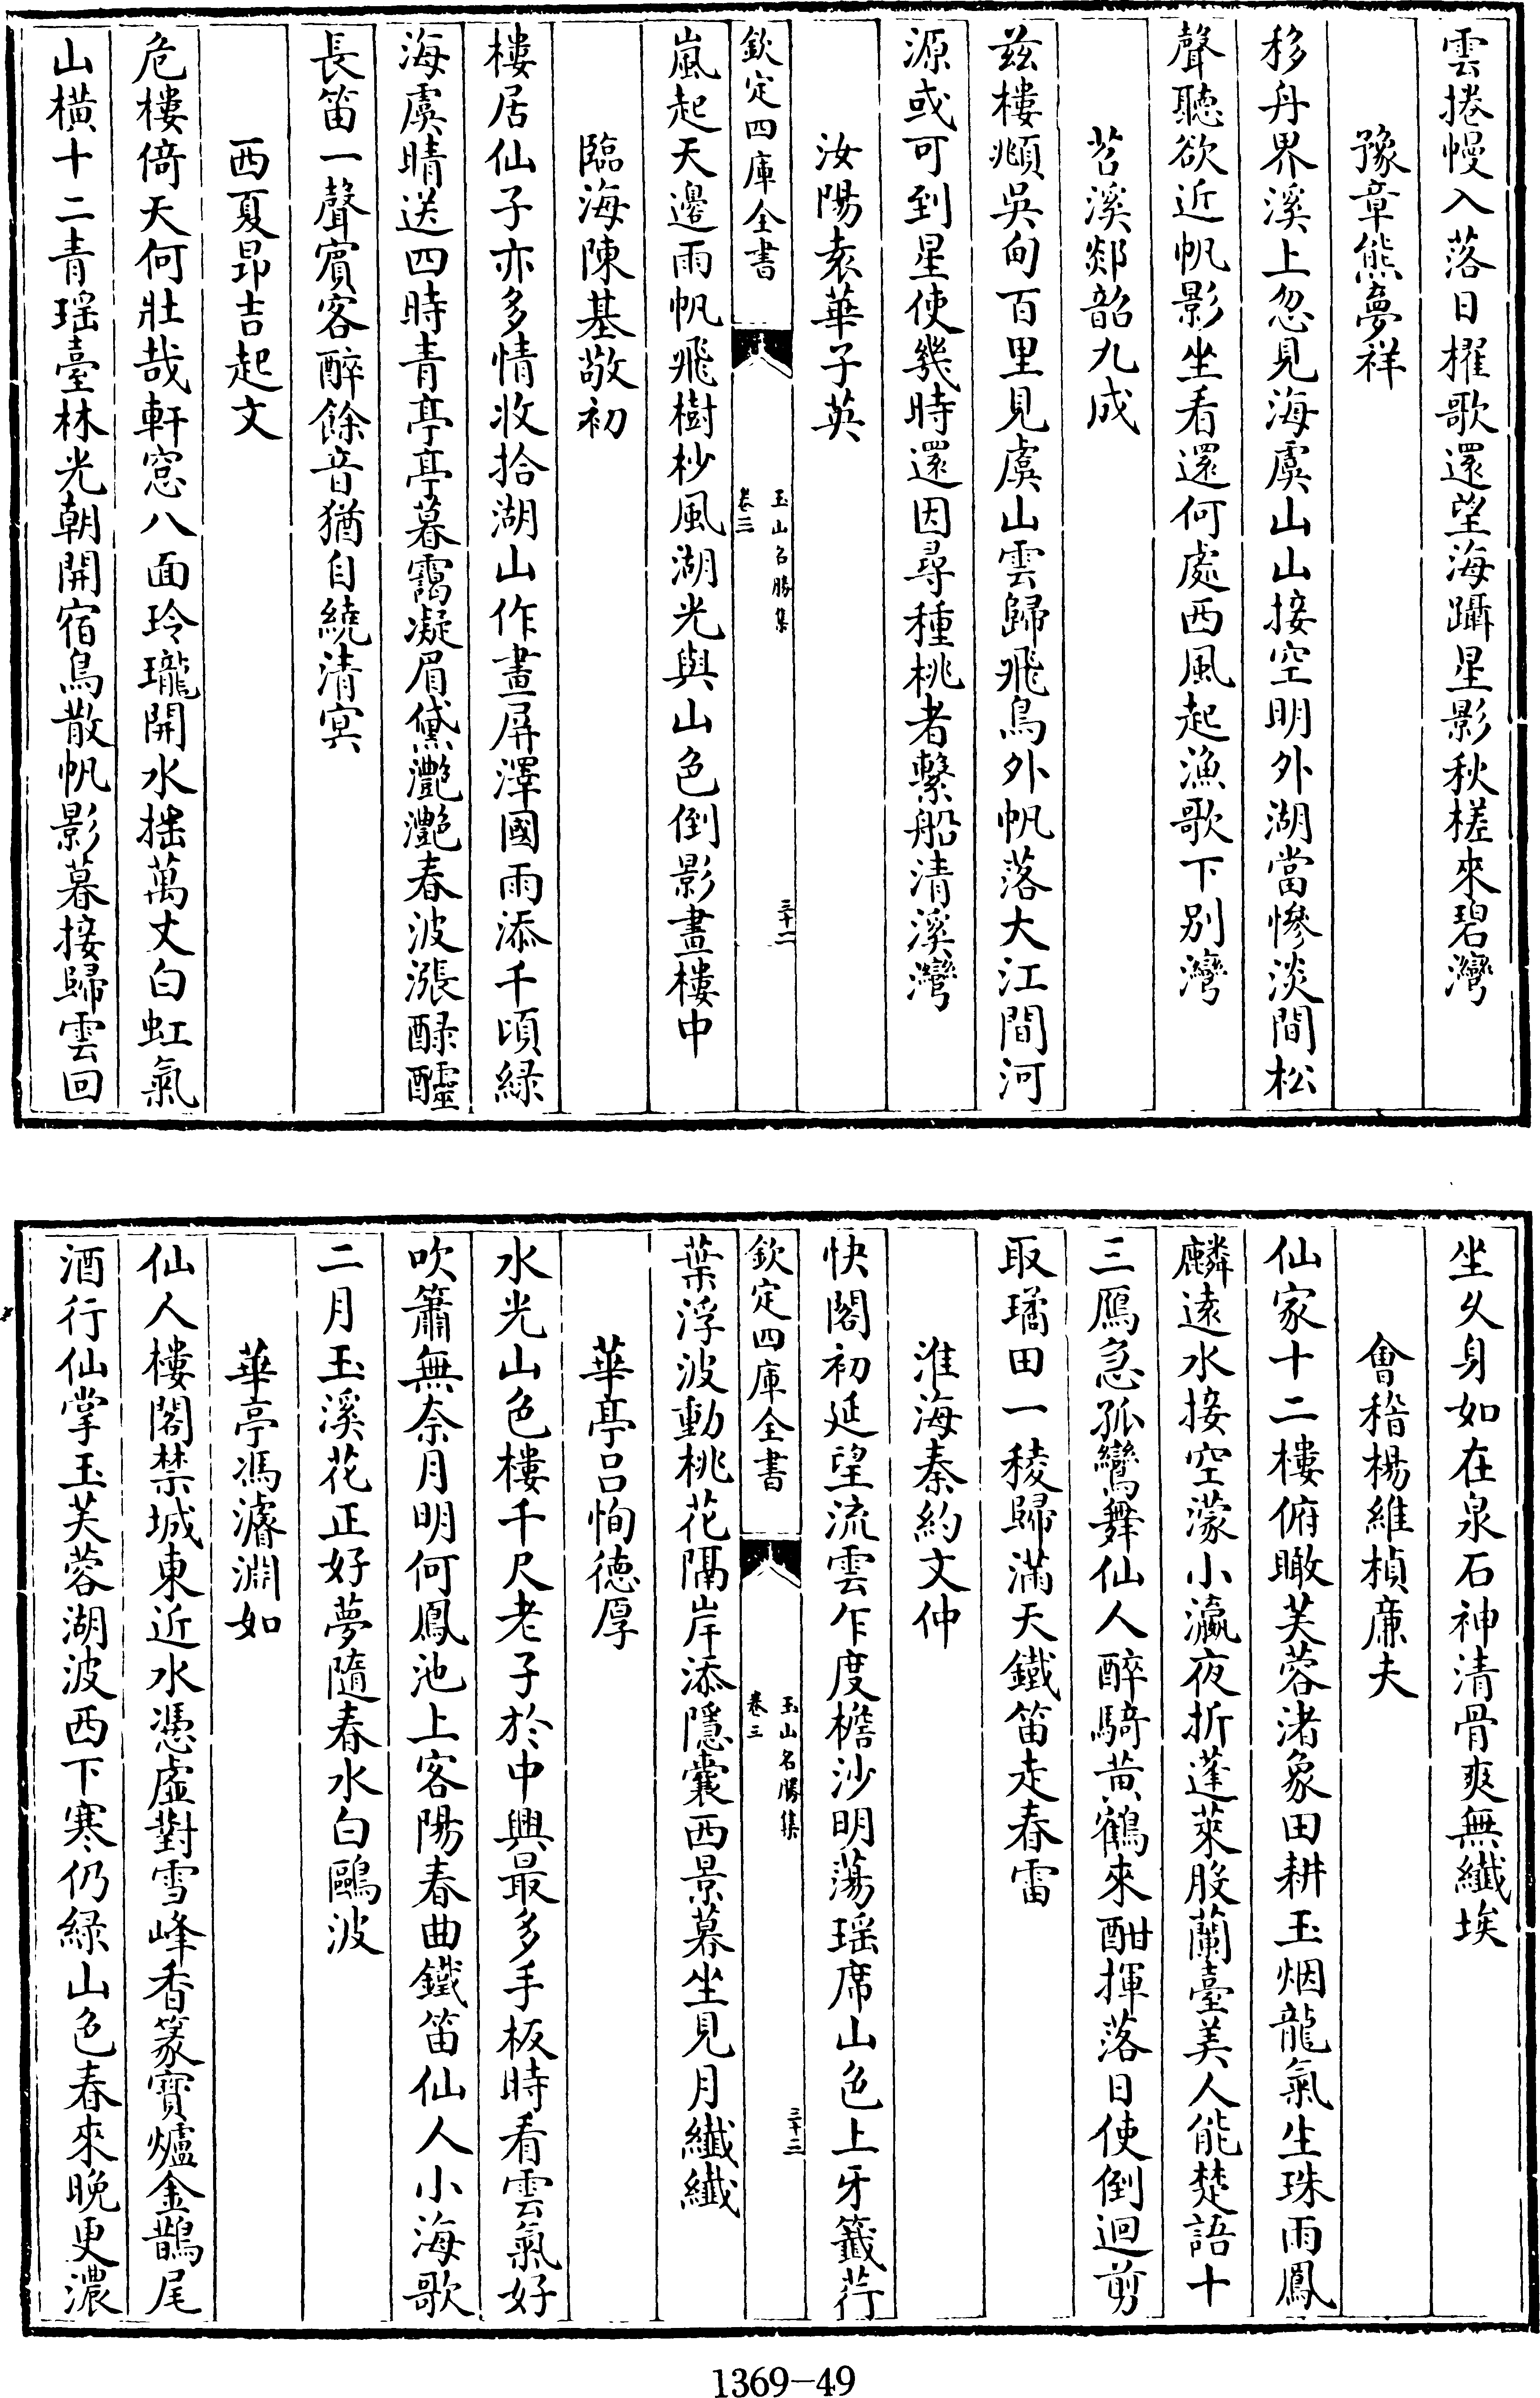 雲捲幔入落日櫂歌還望海躡星影秋槎來碧灣
豫章熊夢祥
移舟界溪上忽見海虞山山接空明外湖當慘淡間松
聲聽欲近帆影坐看還何處西風起漁歌下別灣
苕溪郯韶九成
兹樓頫吳甸百里見虞山雲歸飛鳥外帆落大江間河
源或可到星使幾時還因尋種桃者繫船清溪灣
汝陽袁華子英
欽定四庫全書
玉山名勝集
卷三
三十二
嵐起天邊雨帆飛樹杪風湖光與山色倒影畫樓中
臨海陳基敬初
樓居仙子亦多情收拾湖山作畫屏澤國雨添千頃緑
海虞晴送四時青亭亭暮靄凝眉黛灔灔春波漲醁醽
長笛一聲賓客醉餘音猶自繞清㝠
西夏昂吉起文
危樓倚天何壯哉軒窓八面玲瓏開水搖萬丈白虹氣
山橫十二青瑶臺林光朝開宿鳥散帆影暮接歸雲回
坐久身如在泉石神清骨爽無纎埃
會稽楊維楨亷夫
仙家十二樓俯瞰芙蓉渚象田耕玉烟龍氣生珠雨鳳
麟遠水接空濛小瀛夜折蓬萊股蘭臺美人能楚語十
三鴈急孤鸞舞仙人醉騎黄鶴來酣揮落日使倒迴剪
取璚田一稜歸滿天鐵笛走春雷
淮海秦約文仲
快閣初延望流雲乍度檐沙明蕩瑶席山色上牙籖荇
欽定四庫全書
玉山名勝集
卷三
三十三
葉浮波動桃花隔岸添隱囊西景暮坐見月纎纎
華亭吕恂德厚
水光山色樓千尺老子於中興最多手板時看雲氣好
吹簫無奈月明何鳳池上客陽春曲鐵笛仙人小海歌
二月玉溪花正好夢隨春水白鷗波
華亭馮濬淵如
仙人樓閣禁城東近水憑虛對雪峰香篆寳爐金鵲尾
酒行仙掌玉芙蓉湖波西下寒仍緑山色春來晚更濃
1369-49